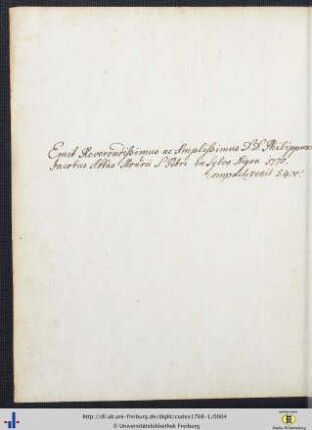 Emit Reverendissimus ac Amplissimus D.D. Philippus
Jacobus Abbas Mon̄rii S. Petri in Sylva Nigra 1770.
Compact. venit 54 x.
http://dl.ub.uni-freiburg.de/diglit/codex1768-1/0004
© Universitätsbibliothek Freiburg